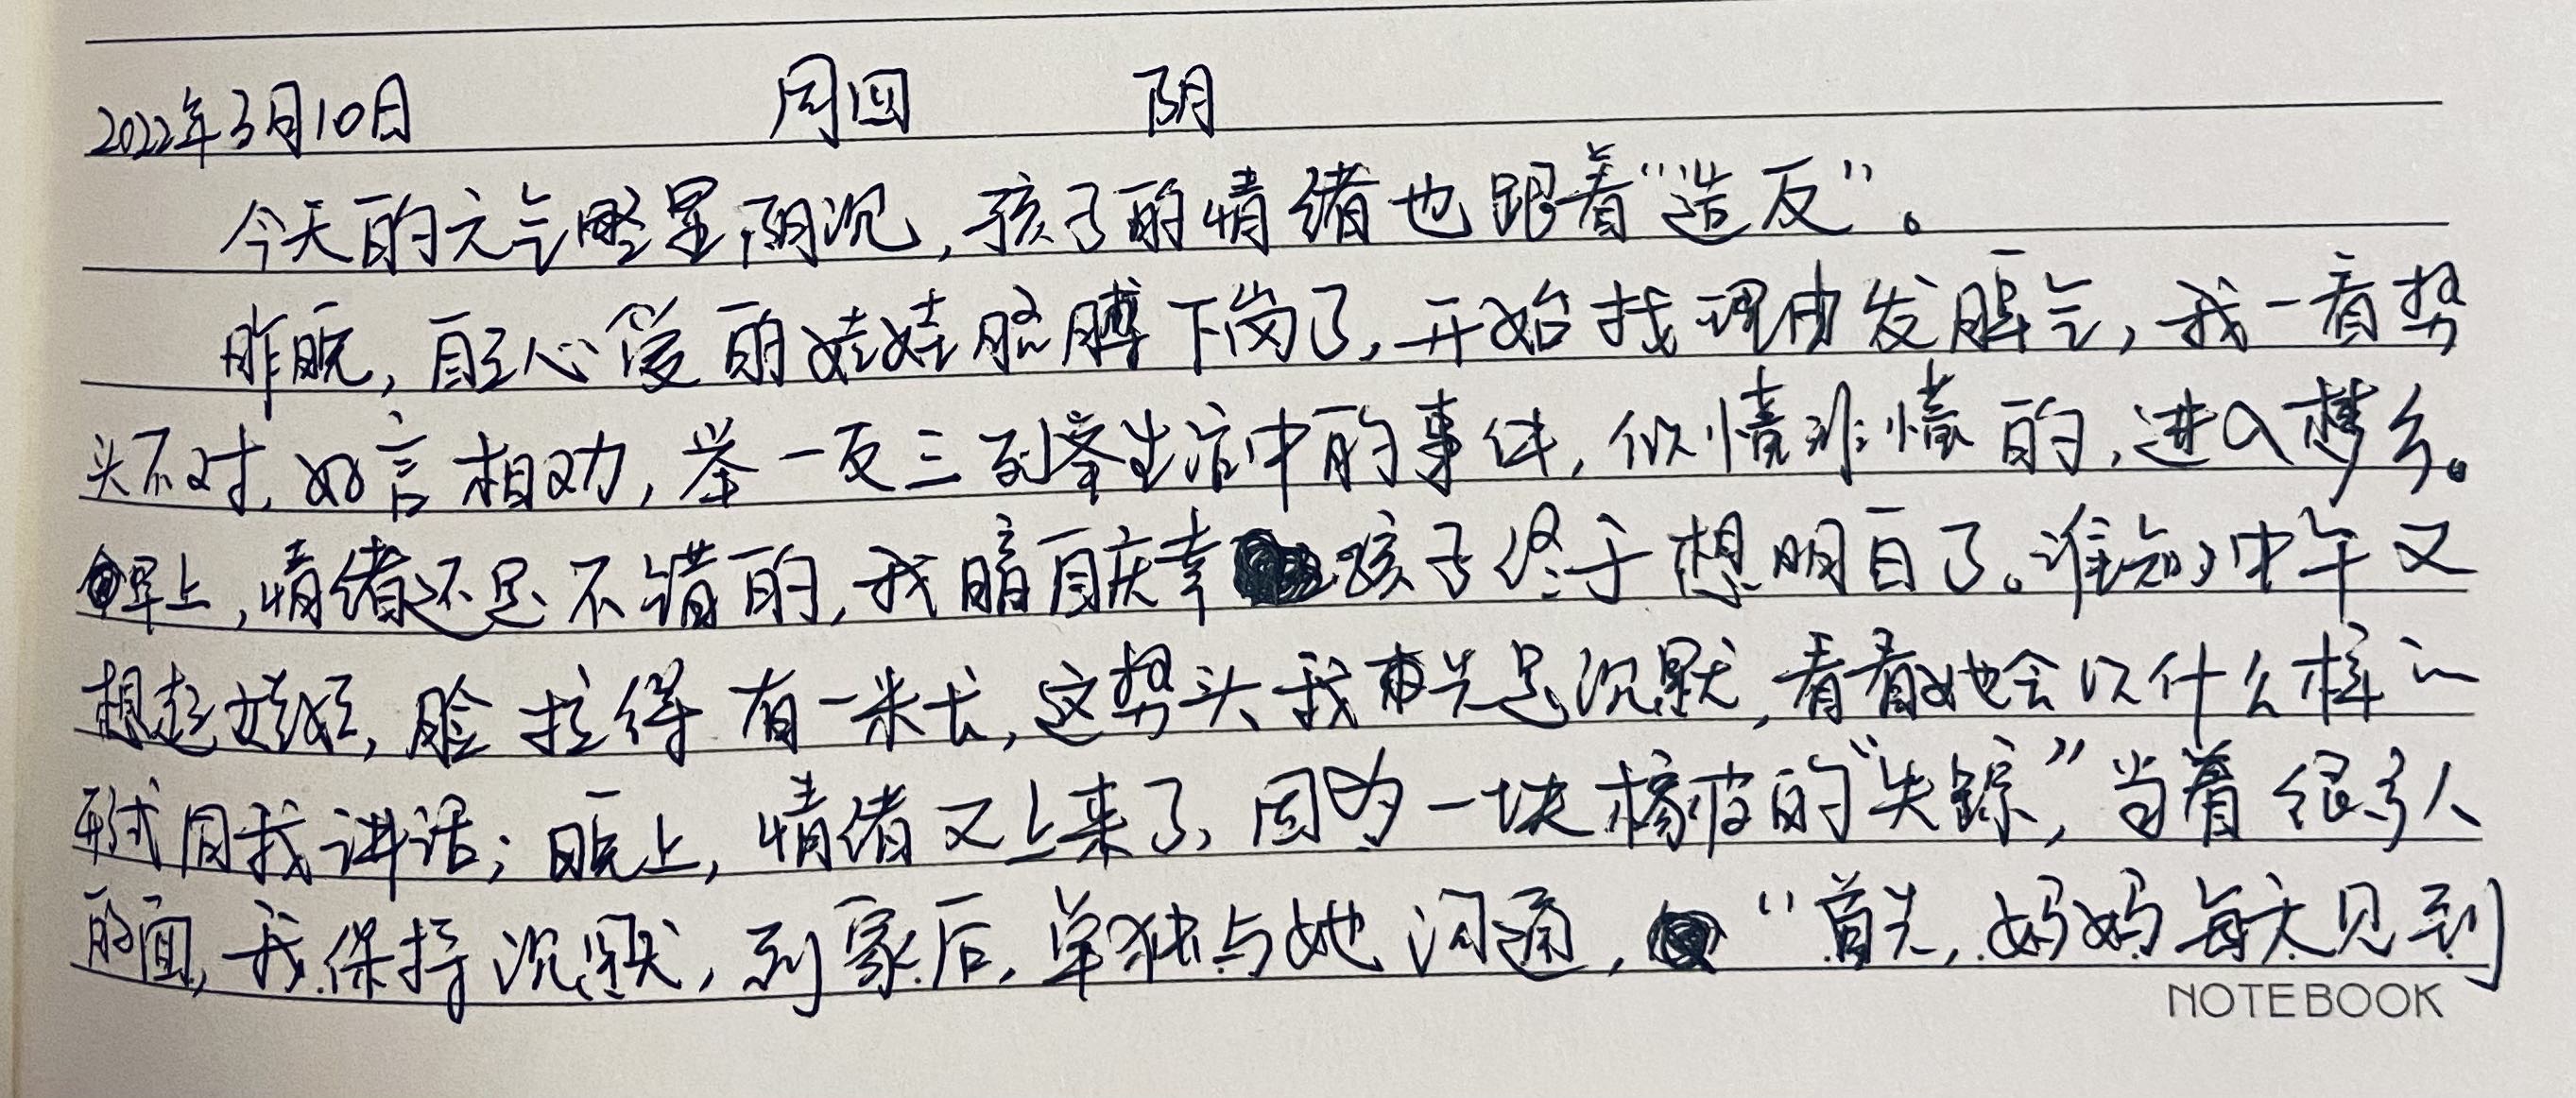 2022年3月10日 周四 阴
今天的元气略显阴沉,孩子的情绪也跟着“造反”。
昨晚,自己心爱的娃娃胳膊下岗了,开始找理由发脾气,我一看势
头不对,好言相劝,举一反三列举生活中的事件,似懂非懂的,进入梦乡。
早上,情绪还是不错的,我暗自庆幸孩子终于想明白了。谁知,中午又
想起娃娃,脸拉得有一米长,这势头我事先是沉默,看看她会以什么样的
形式同我讲话;晚上,情绪又上来了,因为一块橡皮的“失踪”,当着很多人
的面,我保持沉默,到家后,单独与她沟通,“首先,妈妈每天见到
NOTEBOOK